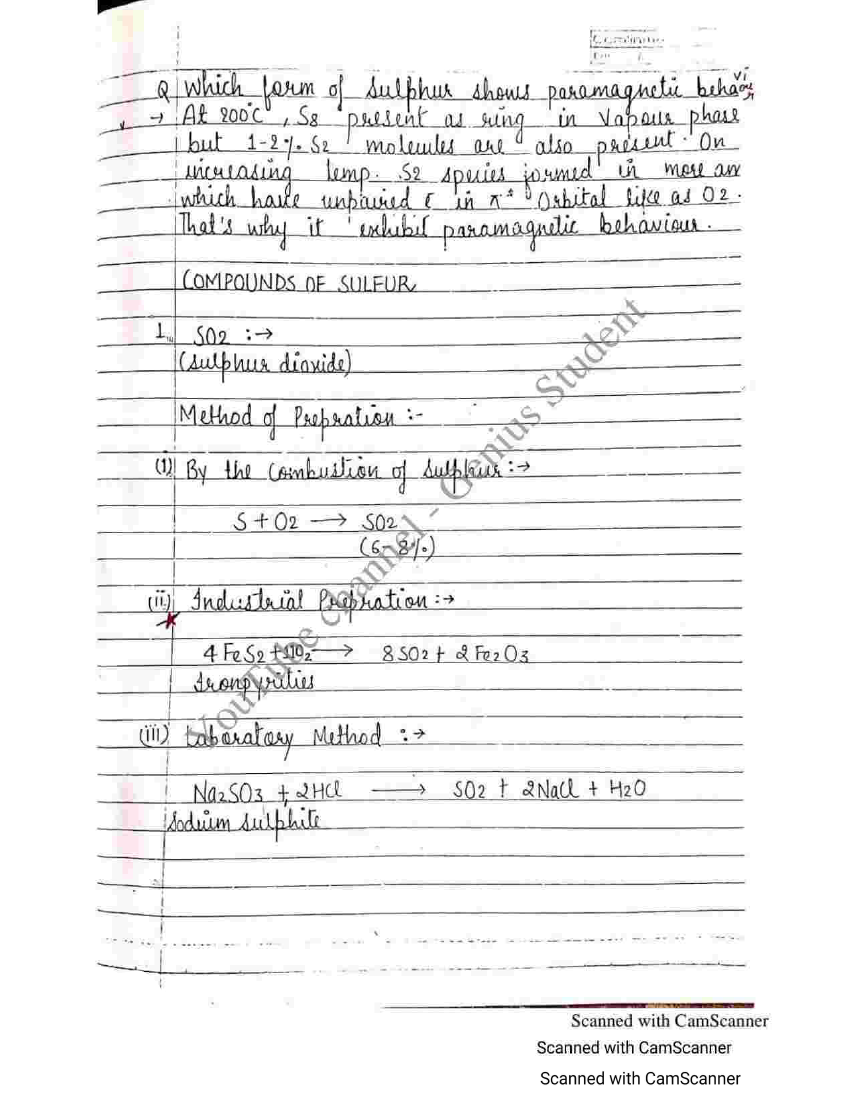 Q Which form of Sulphur shows paramagnetic behaviour
→ At 200°C, S8 present as ring in Vapour phase
but 1-2% S2 molecules are also present. On
increasing temp. S2 species formed in more am
which have unpaired e in π* Orbital like as O2.
That's why it exhibit paramagnetic behaviour.
COMPOUNDS OF SULFUR
1. SO2 :→
(Sulphur dioxide)
Method of Prepration :-
(i) By the Combustion of Sulphur :→
S + O2 → SO2
(6-8%)
(ii) Industrial Prepration :→
4 FeS2 + 11O2 → 8 SO2 + 2 Fe2O3
Ironpyrities
(iii) Laboratory Method :→
Na2SO3 + 2HCl → SO2 + 2NaCl + H2O
Sodium Sulphite
YouTube channel - Genius Student
Scanned with CamScanner
Scanned with CamScanner
Scanned with CamScanner